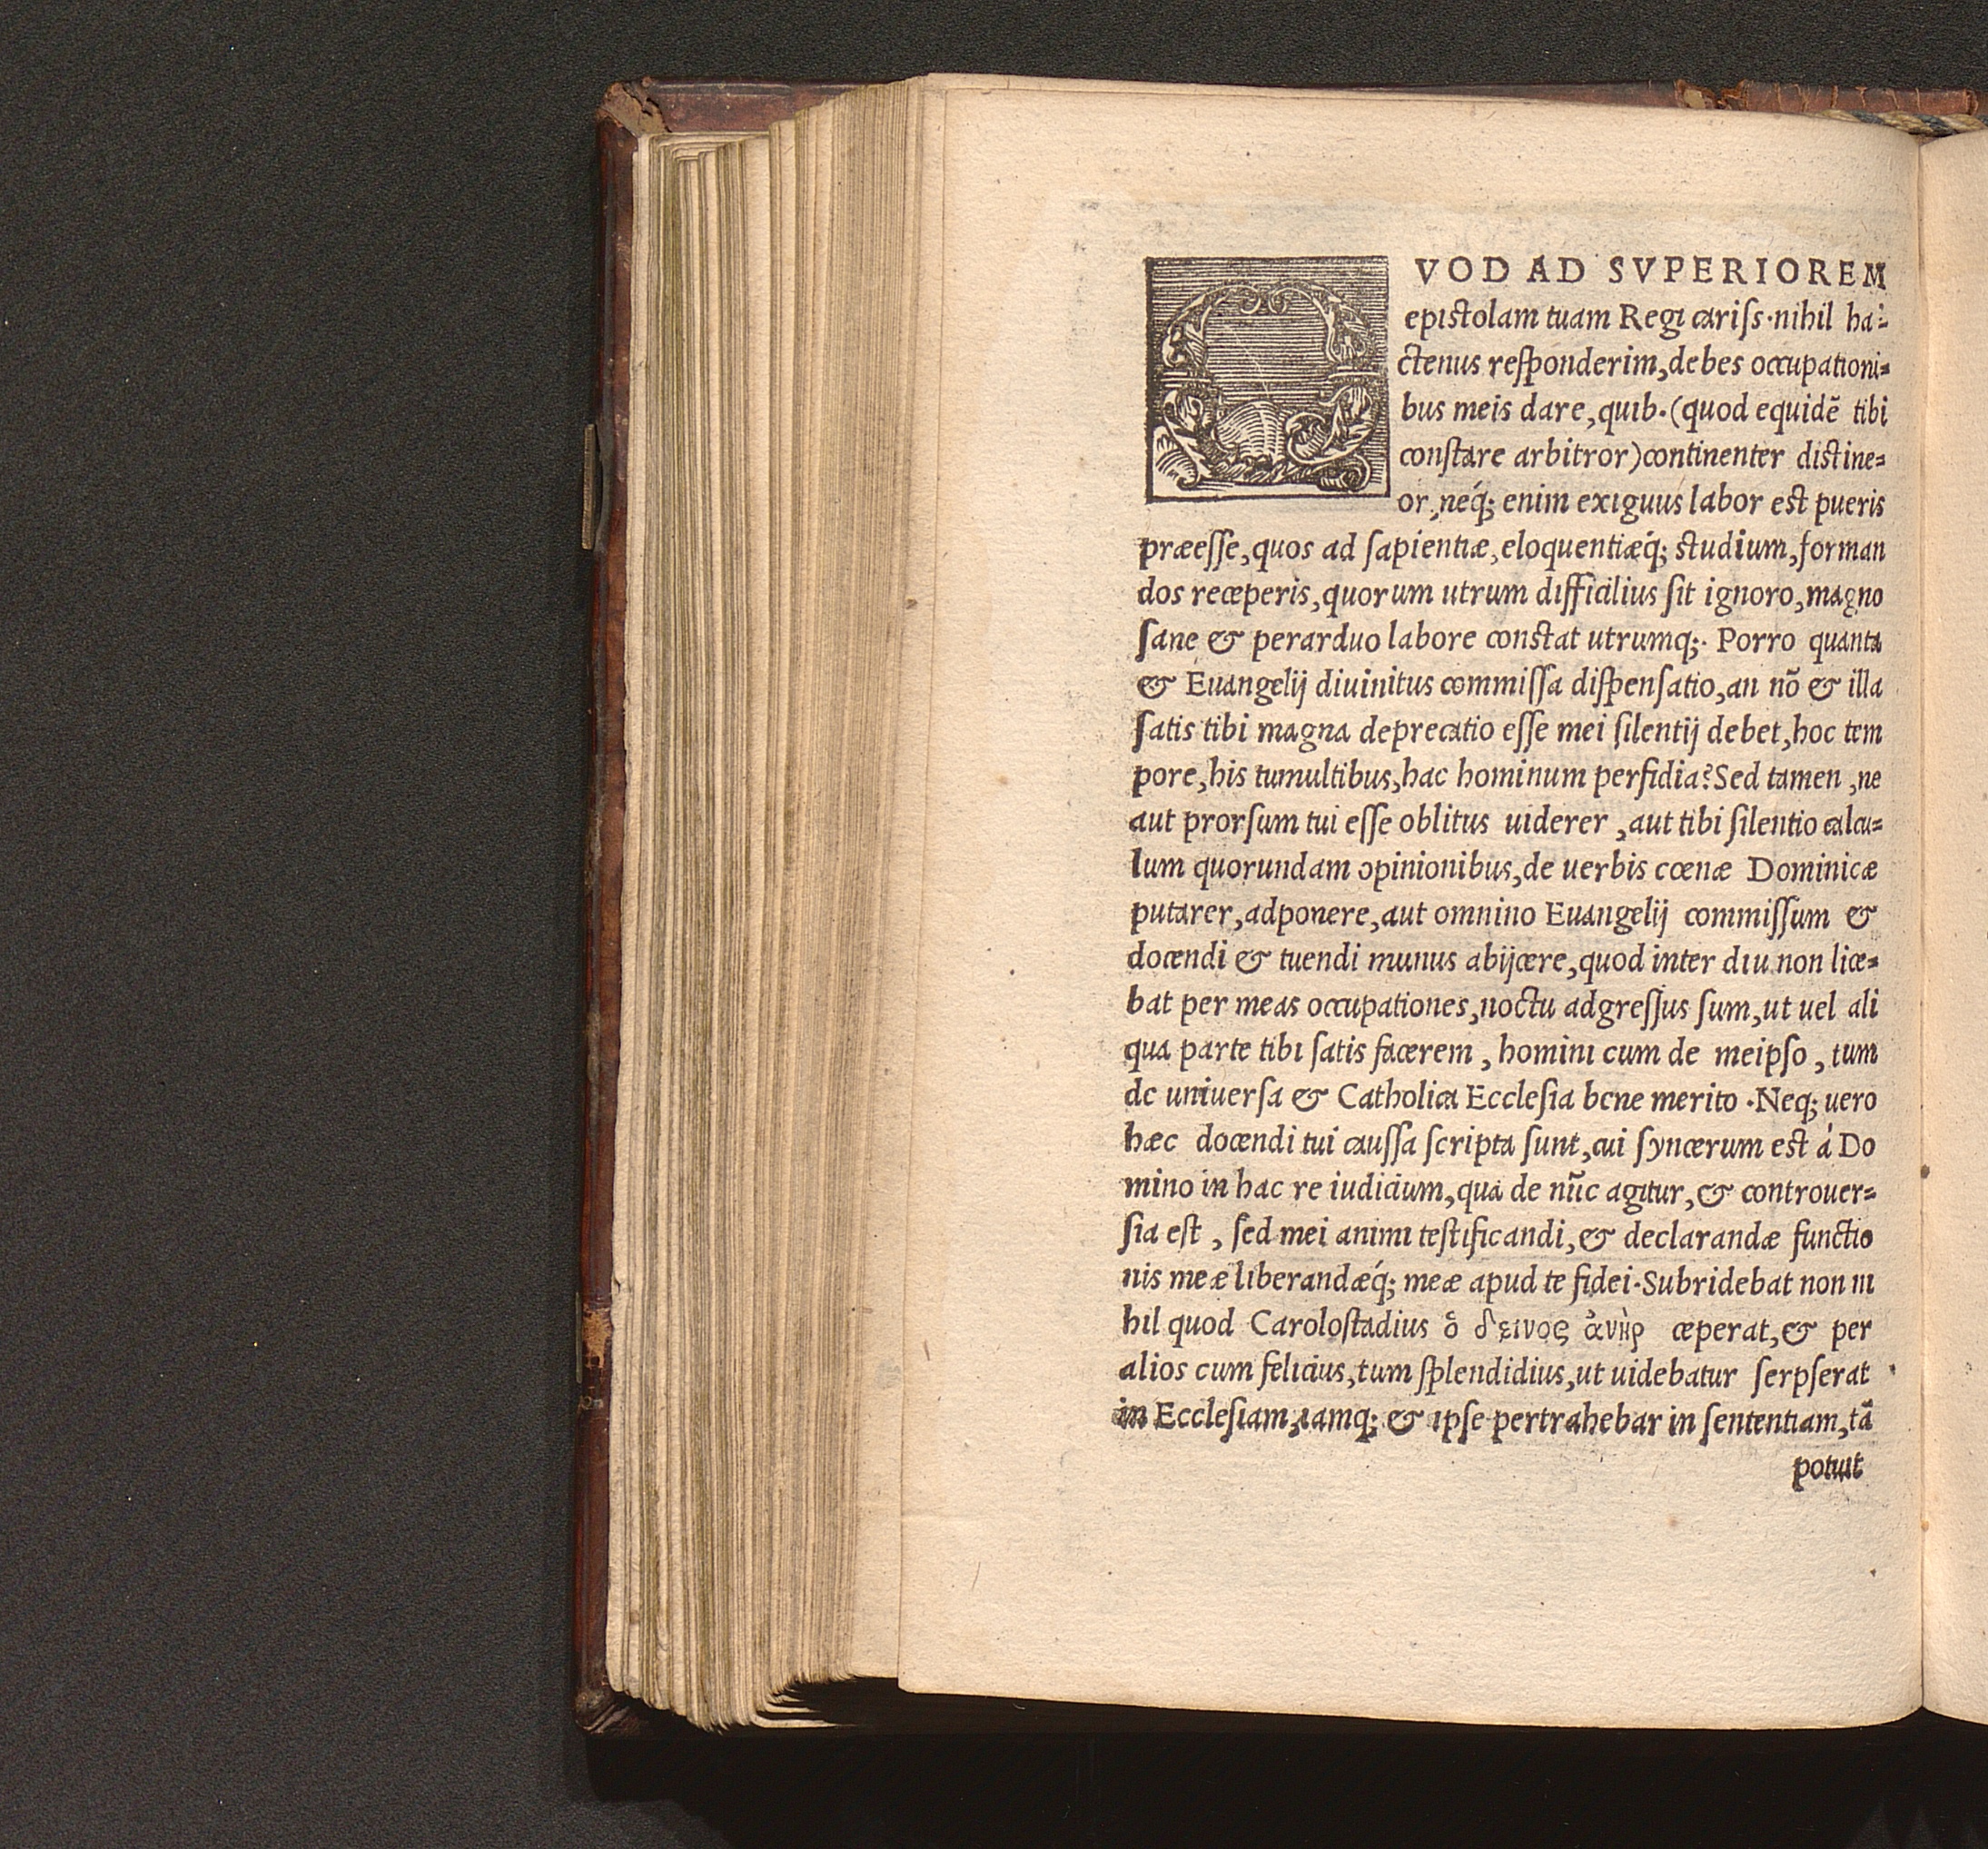 QVOD AD SVPERIOREM
epistolam tuam Regi cariſs. nihil ha-
ctenus reſponderim, debes occupationi=
bus meis dare, quib. (quod equidẽ tibi
conſtare arbitror) continenter distine=
or, neq́; enim exiguus labor est pueris
præeſſe, quos ad ſapientiæ, eloquentiæq́; studium, forman
dos receperis, quorum utrum difficilius ſit ignoro, magno
ſane & perarduo labore constat utrumq;. Porro quanta
& Euangelij diuinitus commiſſa diſpenſatio, an nõ & illa
ſatis tibi magna deprecatio eſſe mei ſilentij debet, hoc tem
pore, his tumultibus, hac hominum perfidia? Sed tamen, ne
aut prorſum tui eſſe oblitus uiderer, aut tibi ſilentio calcu=
lum quorundam opinionibus, de uerbis cœnæ Dominicæ
putarer, adponere, aut omnino Euangelij commiſſum &
docendi & tuendi munus abijcere, quod inter diu non lice=
bat per meas occupationes, noctu adgreſſus ſum, ut uel ali
qua parte tibi ſatis facerem, homini cum de meipſo, tum
de uniuerſa & Catholica Eccleſia bene merito. Neq; uero
hæc docendi tui cauſſa ſcripta ſunt, cui ſyncerum est á Do
mino in hac re iudicium, qua de nũc agitur, & controuer=
ſia eſt, ſed mei animi teſtificandi, & declarandæ functio
nis meæ liberandæq́; meæ apud te fidei. Subridebat non ni
hil quod Caroloſtadius ὁ δεινος ἀνὴρ cœperat, & per
alios cum felicius, tum ſplendidius, ut uidebatur ſerpſerat
in Eccleſiam, iamq; & ipſe pertrahebar in ſententiam, tã
potuit